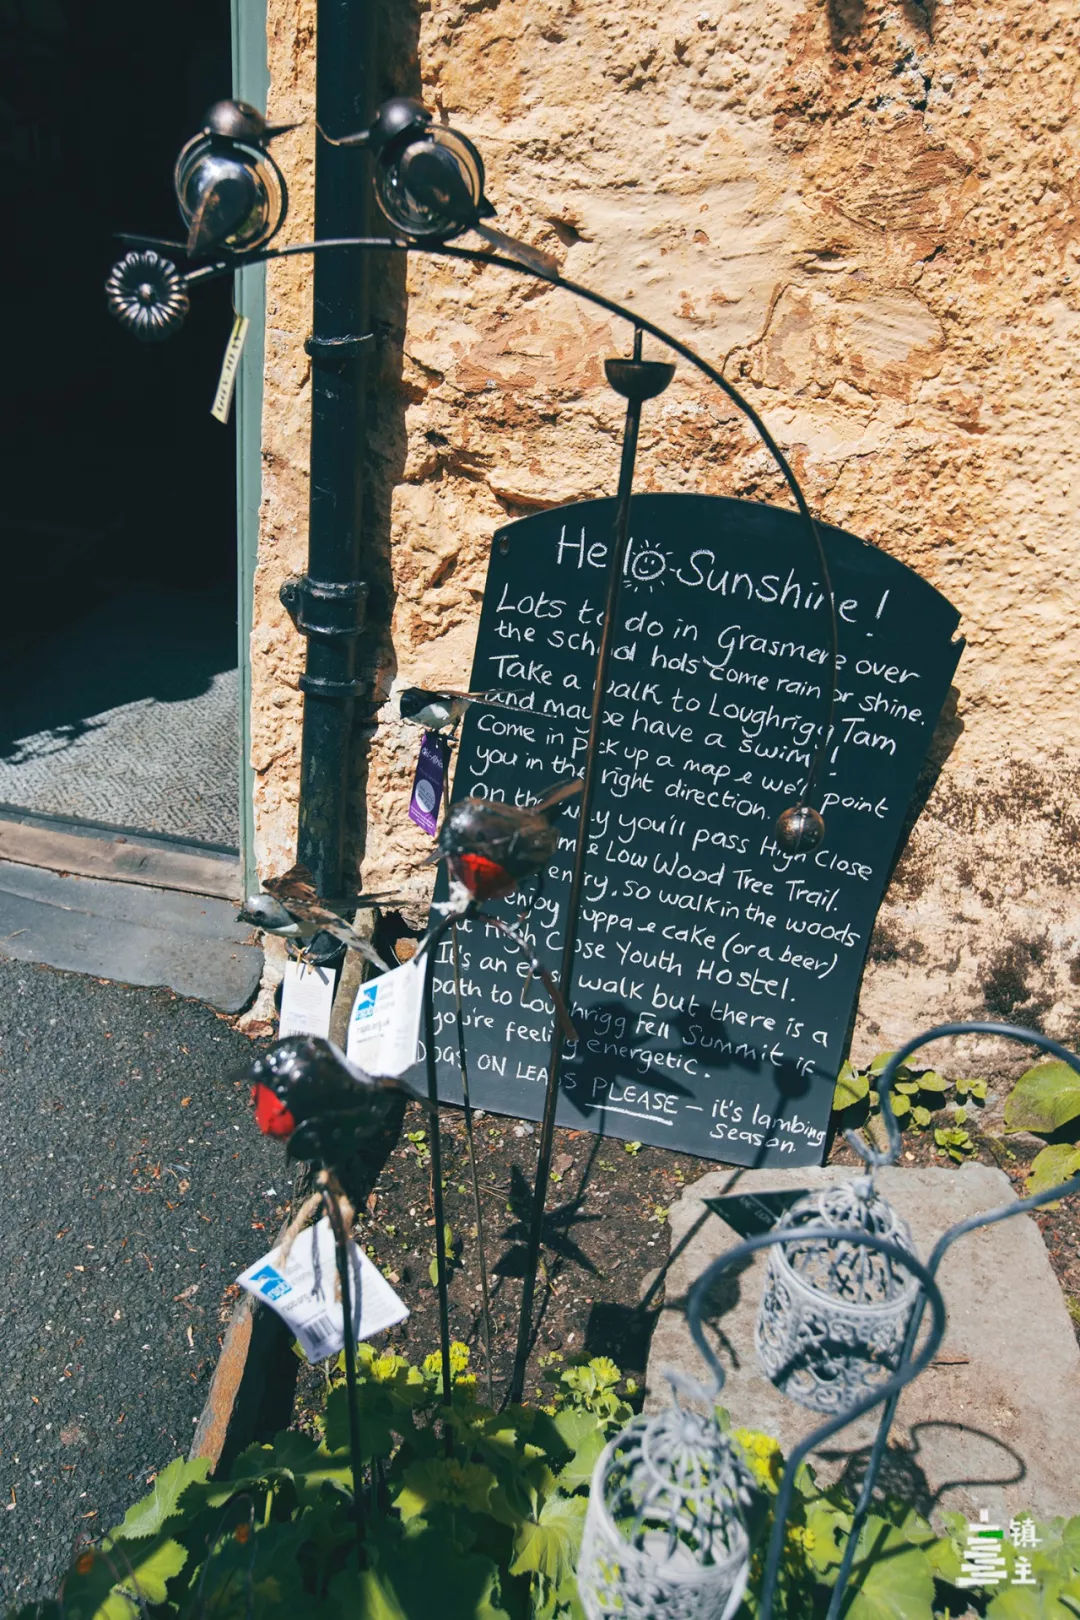 Hello Sunshine!
Lots to do in Grasmere over
the school hols come rain or shine.
Take a walk to Loughrigg Tarn
and maybe have a swim!
Come in pick up a map & we'll point
you in the right direction.
On the way you'll pass High Close
& Low Wood Tree Trail.
entry, so walk in the woods
enjoy cuppa & cake (or a beer)
at High Close Youth Hostel.
It's an easy walk but there is a
path to Loughrigg Fell Summit if
you're feeling energetic.
DOGS ON LEADS PLEASE - it's lambing
season.
镇
主